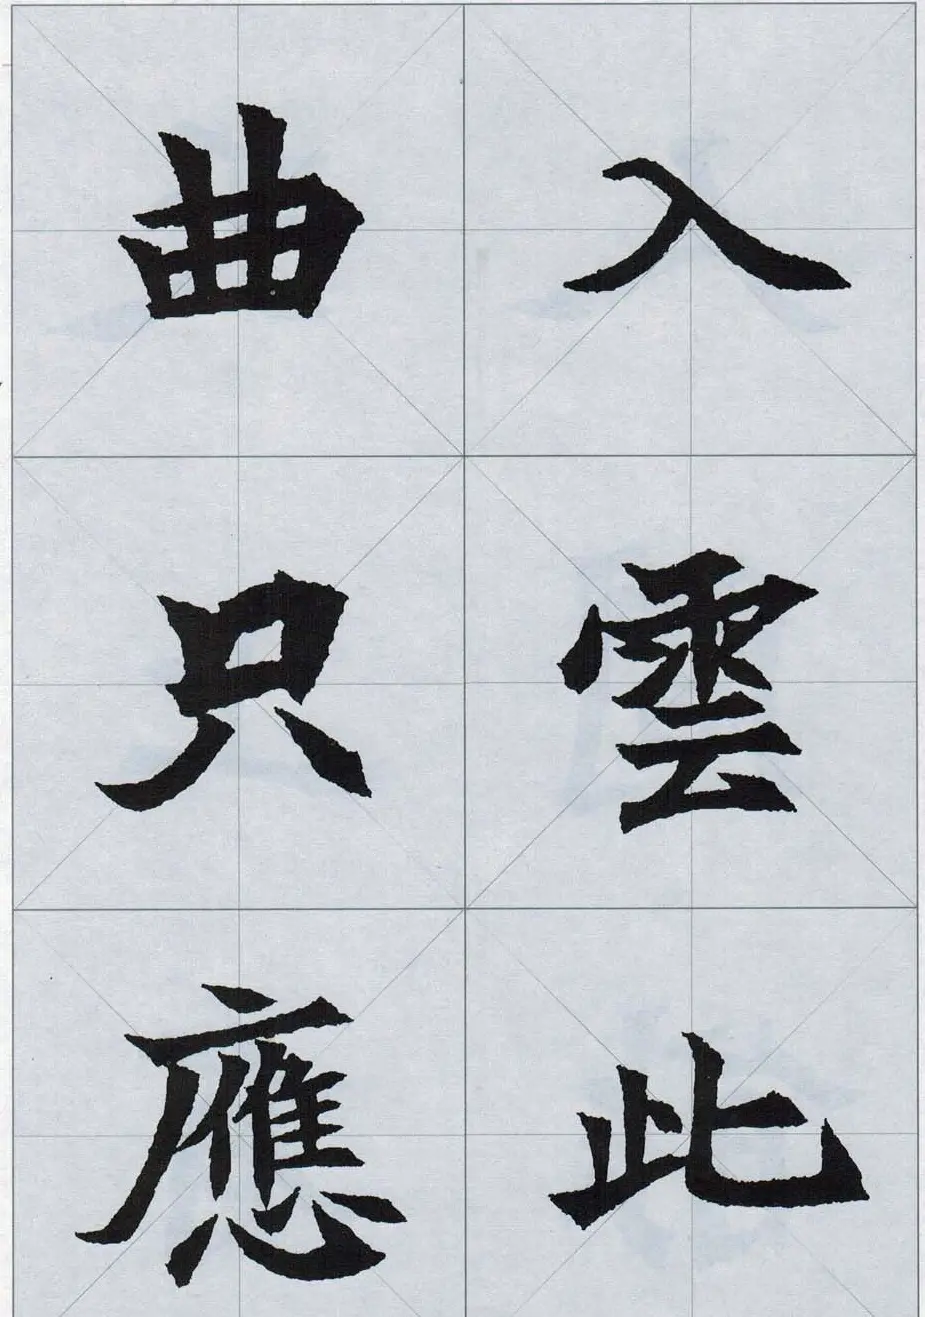 入雲此
曲只應